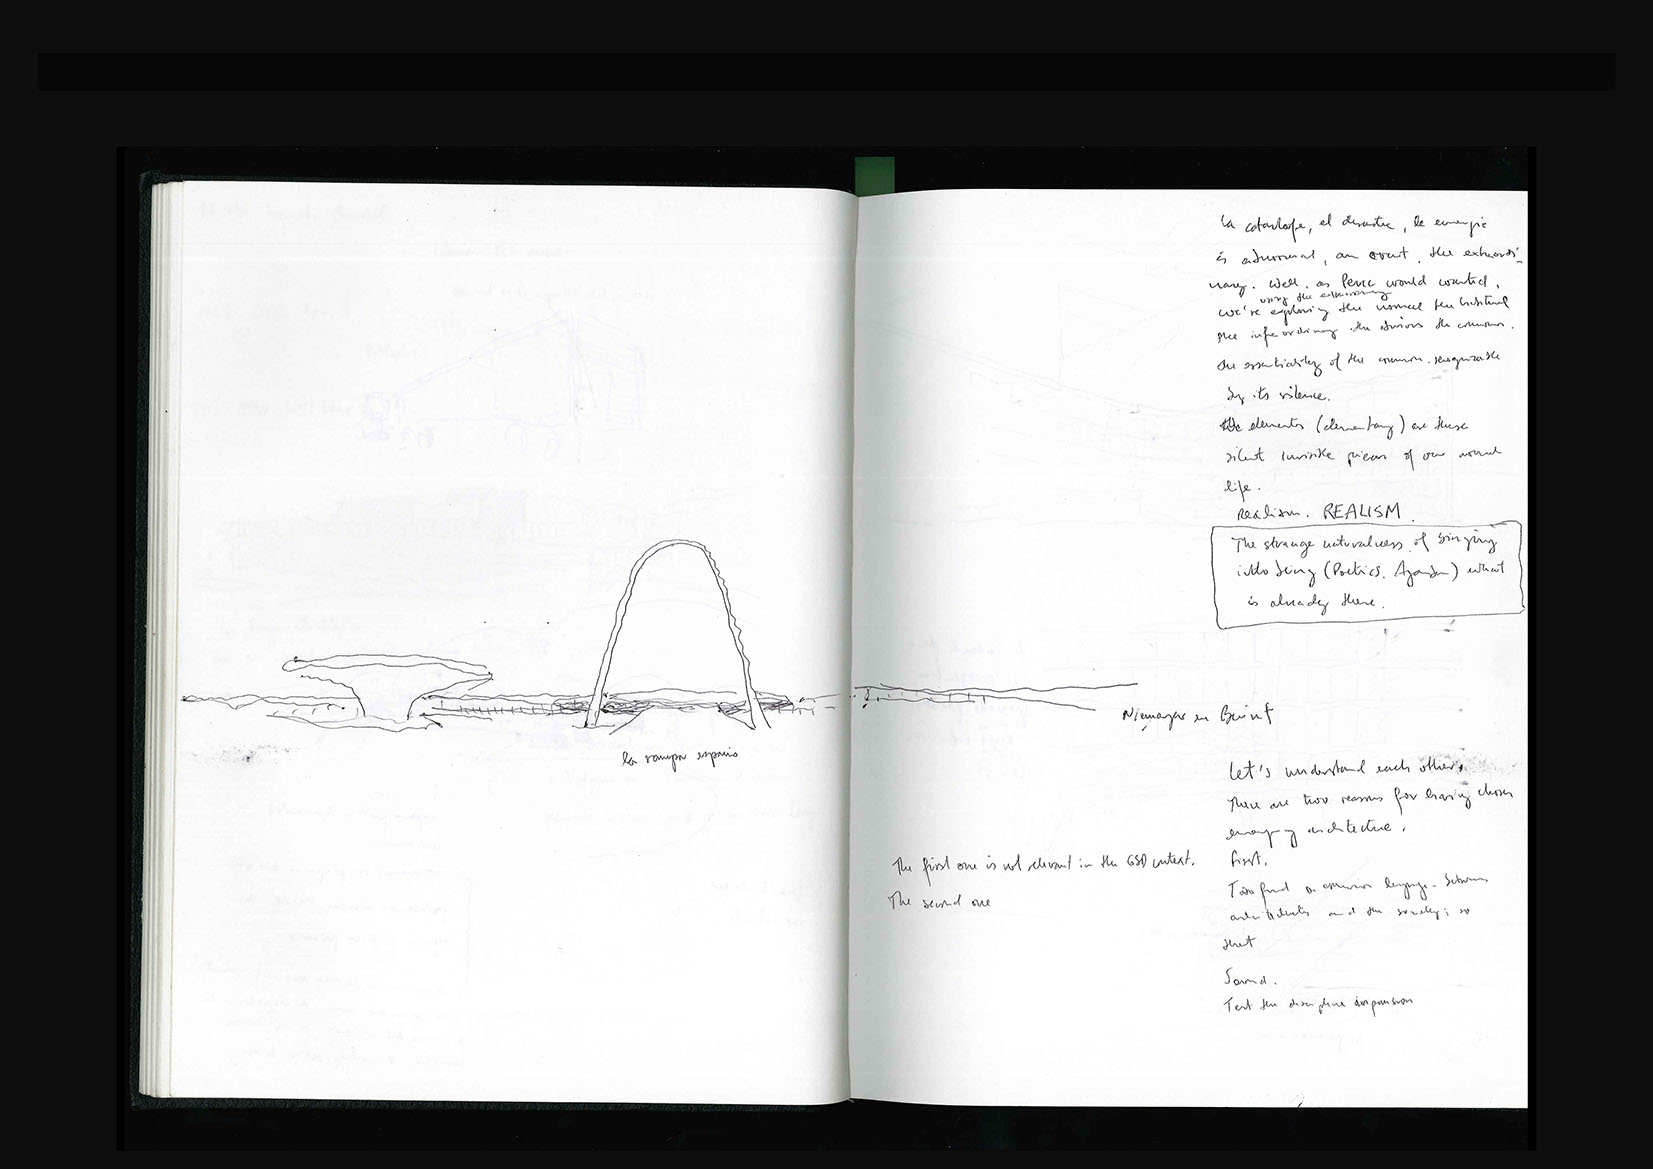 la rampa espacio
la catastrofe, el desastre, la emergie
is abnormal, an event, the extraordi-
nary. Well, as Perec would wanted,
using the extraordinary
we're exploring the normal the habitual
the infraordinary the obvious the common.
the essentiality of the common. recognizable
by its silence.
The elements (elementary) are these
silent invisible pieces of our normal
life.
Realism. REALISM.
The strange naturalness of bringing
into being (Poetics. Agamben) what
is already there.
Niemeyer en Beirut
Let's understand each other,
There are two reasons for having chosen
emergency architecture.
First,
To find a common language between
architects and the society; so
that
Second.
Test the discipline expansion
The first one is not relevant in the GSD context.
The second one